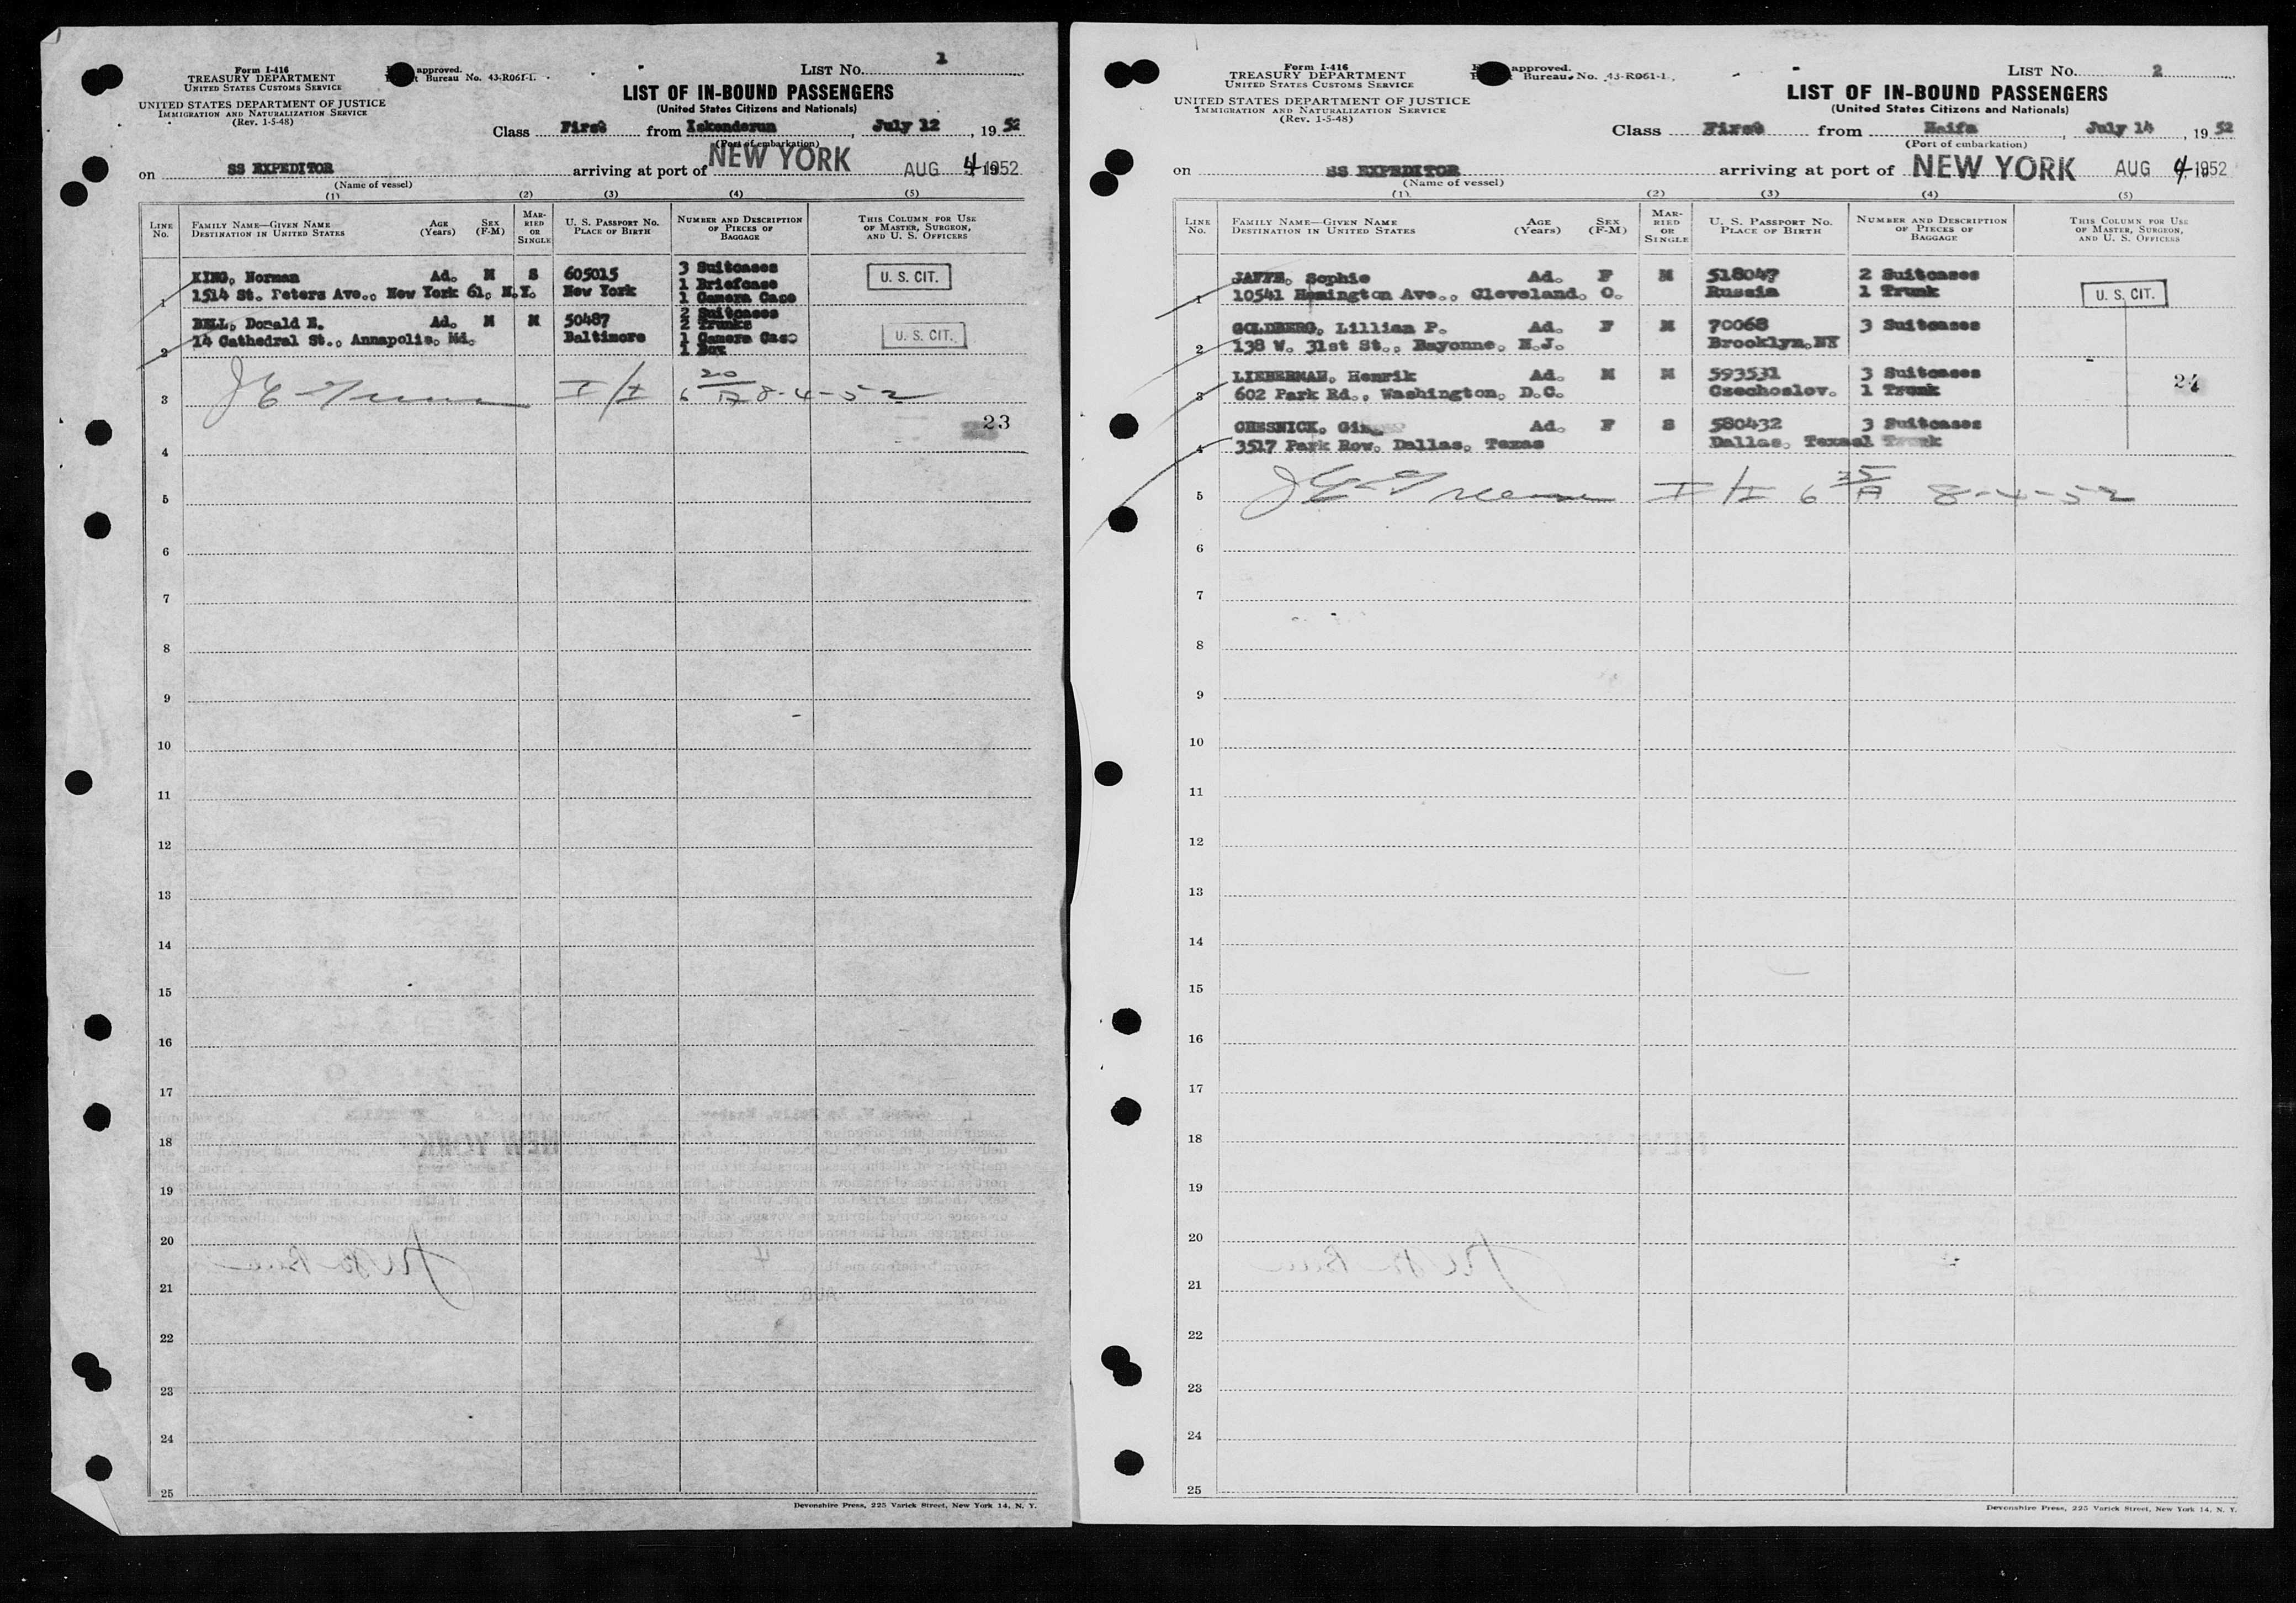 Form I-416
TREASURY DEPARTMENT
UNITED STATES CUSTOMS SERVICE
UNITED STATES DEPARTMENT OF JUSTICE
IMMIGRATION AND NATURALIZATION SERVICE
(Rev. 1-5-48)
approved.
Bureau No. 43-R061-1.
LIST NO. 1
LIST OF IN-BOUND PASSENGERS
(United States Citizens and Nationals)
Class First from Iskenderun, July 12, 1952
(Port of embarkation)
on SS EXPEDITOR arriving at port of NEW YORK AUG 4 1952
(Name of vessel)
(1) (2) (3) (4) (5)
LINE NO. FAMILY NAME—GIVEN NAME DESTINATION IN UNITED STATES AGE (Years) SEX (F-M) MARRIED OR SINGLE U. S. PASSPORT NO. PLACE OF BIRTH NUMBER AND DESCRIPTION OF PIECES OF BAGGAGE THIS COLUMN FOR USE OF MASTER, SURGEON, AND U. S. OFFICERS
KING, Norman Ad. M S 605015 3 Suitcases U. S. CIT.
1 1514 St. Peters Ave., New York 61, N.Y. New York 1 Briefcase
1 Camera Case
2 Suitcases
BELL, Donald E. Ad. M M 50487 2 Trunks U. S. CIT.
2 14 Cathedral St., Annapolis, Md. Baltimore 1 Camera Case
1 Box
3 I/I 6 20/A 8-4-52
23
4
5
6
7
8
9
10
11
12
13
14
15
16
17
18
19
20
21
22
23
24
25
Devonshire Press, 225 Varick Street, New York 14, N. Y.
Form I-416
TREASURY DEPARTMENT
UNITED STATES CUSTOMS SERVICE
UNITED STATES DEPARTMENT OF JUSTICE
IMMIGRATION AND NATURALIZATION SERVICE
(Rev. 1-5-48)
approved.
Bureau No. 43-R061-1.
LIST NO. 2
LIST OF IN-BOUND PASSENGERS
(United States Citizens and Nationals)
Class First from Haifa, July 14, 1952
(Port of embarkation)
on SS EXPEDITOR arriving at port of NEW YORK AUG 4 1952
(Name of vessel)
(1) (2) (3) (4) (5)
LINE NO. FAMILY NAME—GIVEN NAME DESTINATION IN UNITED STATES AGE (Years) SEX (F-M) MARRIED OR SINGLE U. S. PASSPORT NO. PLACE OF BIRTH NUMBER AND DESCRIPTION OF PIECES OF BAGGAGE THIS COLUMN FOR USE OF MASTER, SURGEON, AND U. S. OFFICERS
JAFFE, Sophie Ad. F M 518047 2 Suitcases
1 10541 Hemington Ave., Cleveland, O. Russia 1 Trunk U. S. CIT.
GOLDBERG, Lillian P. Ad. F M 70068 3 Suitcases
2 138 W. 31st St., Bayonne, N.J. Brooklyn,NY
LIEBERMAN, Henrik Ad. M M 593531 3 Suitcases 24
3 602 Park Rd., Washington, D.C. Czechoslov. 1 Trunk
CHESNICK, Ad. F S 580432 3 Suitcases
4 3517 Park Row, Dallas, Texas Dallas, Texas 1 Trunk
5 I/I 6 25/A 8-4-52
6
7
8
9
10
11
12
13
14
15
16
17
18
19
20
21
22
23
24
25
Devonshire Press, 225 Varick Street, New York 14, N. Y.